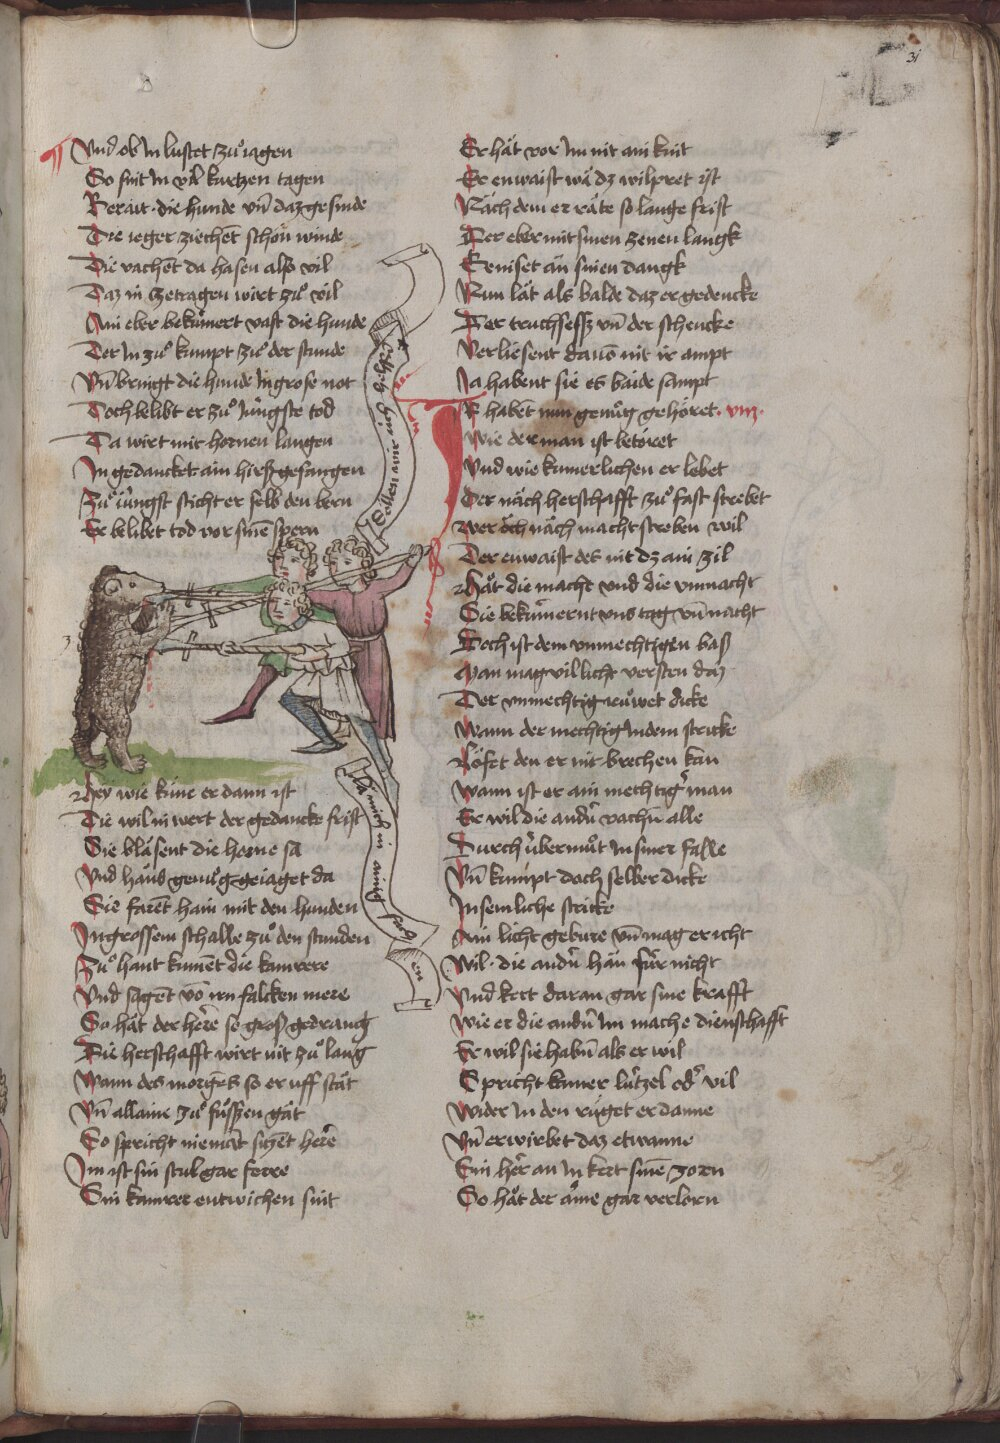 31
Und ob In lustet zuͦ iagen
So sint In vil kurtzen tagen
Berait · die hunde vn̄ daz gesinde
Die ieger ziechēt schön winde
Die vachēt da hasen also vil
Daz in zetragen wirt zuͦ vil
Ain eber bekúmert vast die hunde
Der In zuͦ kumpt zuͦ der stunde
Vn̄ bringt die hunde In grose not
Doch belibt er zuͦ Iungste tod
Da wirt mit hornen langen
In gedancket ain hirß gefangen
Zuͦ iúngst sticht er selb den bern
Er belibet tod vor sinē spern
Sollen wir im helffen
Hey wie küne er dann ist
Die wil in wert der gedancke frist
Sie blasent die horne sa
Und haūd genuͦg geiaget da
Sie farēt hain mit den hunden
In grossem schalle zuͦ den stunden
Zuͦ hant kumēt die kamrere
Und sagēt vō irn falcken mere
So hät der here so groß gedrang
Die herschafft wirt nit zuͦ lang
Wann des morgēs so er uff stät
Vn̄ allaine zuͦ fuͦssen gät
So spricht niemāt sitzēt here
Im ist sin stul gar ferre
Sin kamrer entwichen sint
Er hät vor Im nit ain kint
Er enwaist wä dz wilpret ist
Näch dem er räte so lange frist
Der eber mit sinen zenen langk
Er niset än sinen dangk
Nun lät als balde daz er gedencke
Der truchsess vn̄ der schencke
Verliesent dauō nit ir ampt
Ia habent sie es baide sampt
IR habēt nun genuͦg gehöret · viij ·
Wie der man ist betöret
Und wie kumerlichen er lebet
Der näch herschafft zuͦ fast strebet
Wer öch näch macht streben wil
Der enwaist des nit dz ain zil
Hät die macht und die vnmacht
Sie bekúmernt vns tag vn̄ nacht
Doch ist dem vnmechtigen baß
Man mag vil licht versten daz
Der vnmechtig ruͦwet dicke
Wann der mechtig In dem stricke
den er nit brechen kan
Wann ist er ain mechtigʼ man
Er wil die andn̄ vachn̄ alle
Durch úbermuͦt In siner falle
Vn̄ kumpt doch selber dicke
In semliche stricke
Ain licht gebure vn̄ mag er icht
Wil · die andn̄ hän fúr nicht
Und kert daran gar sine krafft
Wie er die andn̄ Im mache dienschafft
Er wil sie habn̄ als er wil
Spricht kainer lútzel odʼ vil
Wider In den rúget er danne
Vn̄ erwirbet daz etwanne
Ein her an In kert sinē zorn
So hät der arme gar verlorn